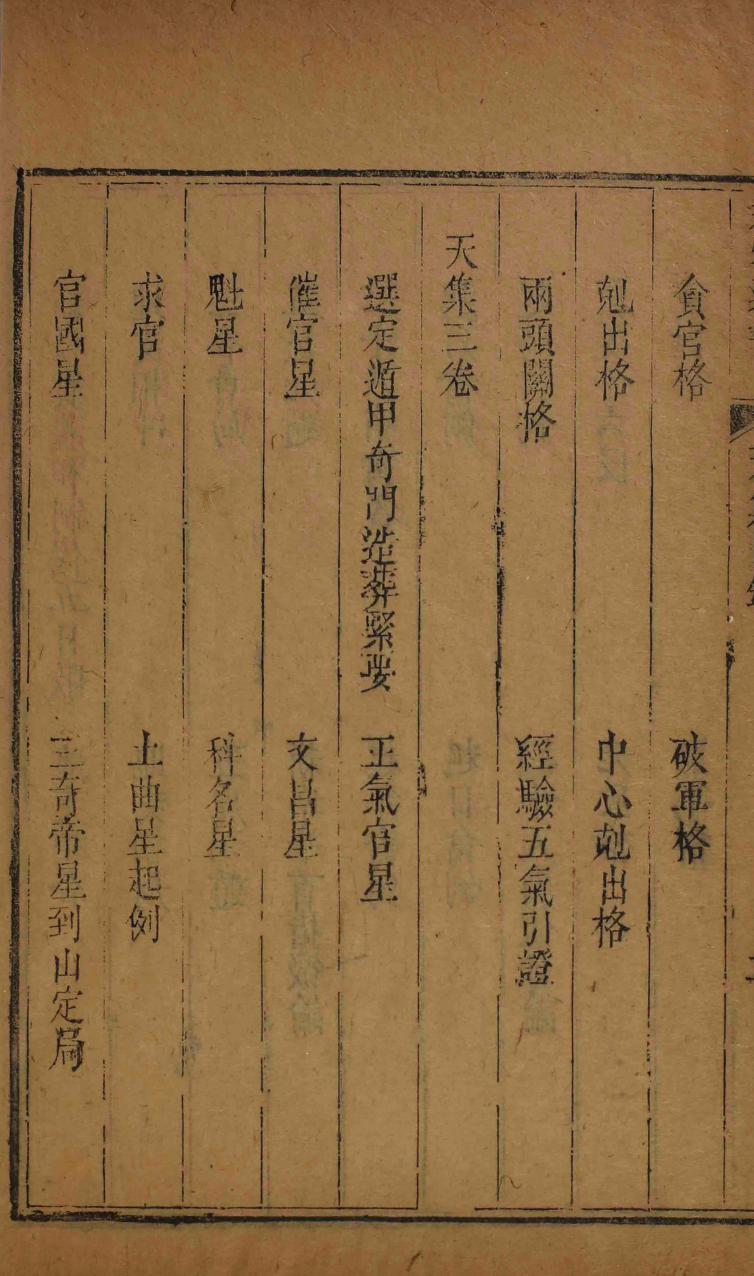 貪官格　破軍格
尅出格　中心尅出格
兩頭關格　經驗五氣引證
天集三卷
選定遁甲奇門造葬緊要　正氣官星
催官星　文昌星
魁星　科名星
求官　土曲星起例
官國星　三奇帝星到山定局